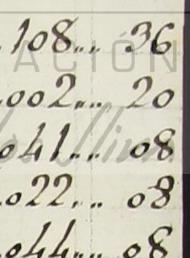 .108... 36
ACIÓN
.002... 20
041... 08
.022... 08
.044... 08